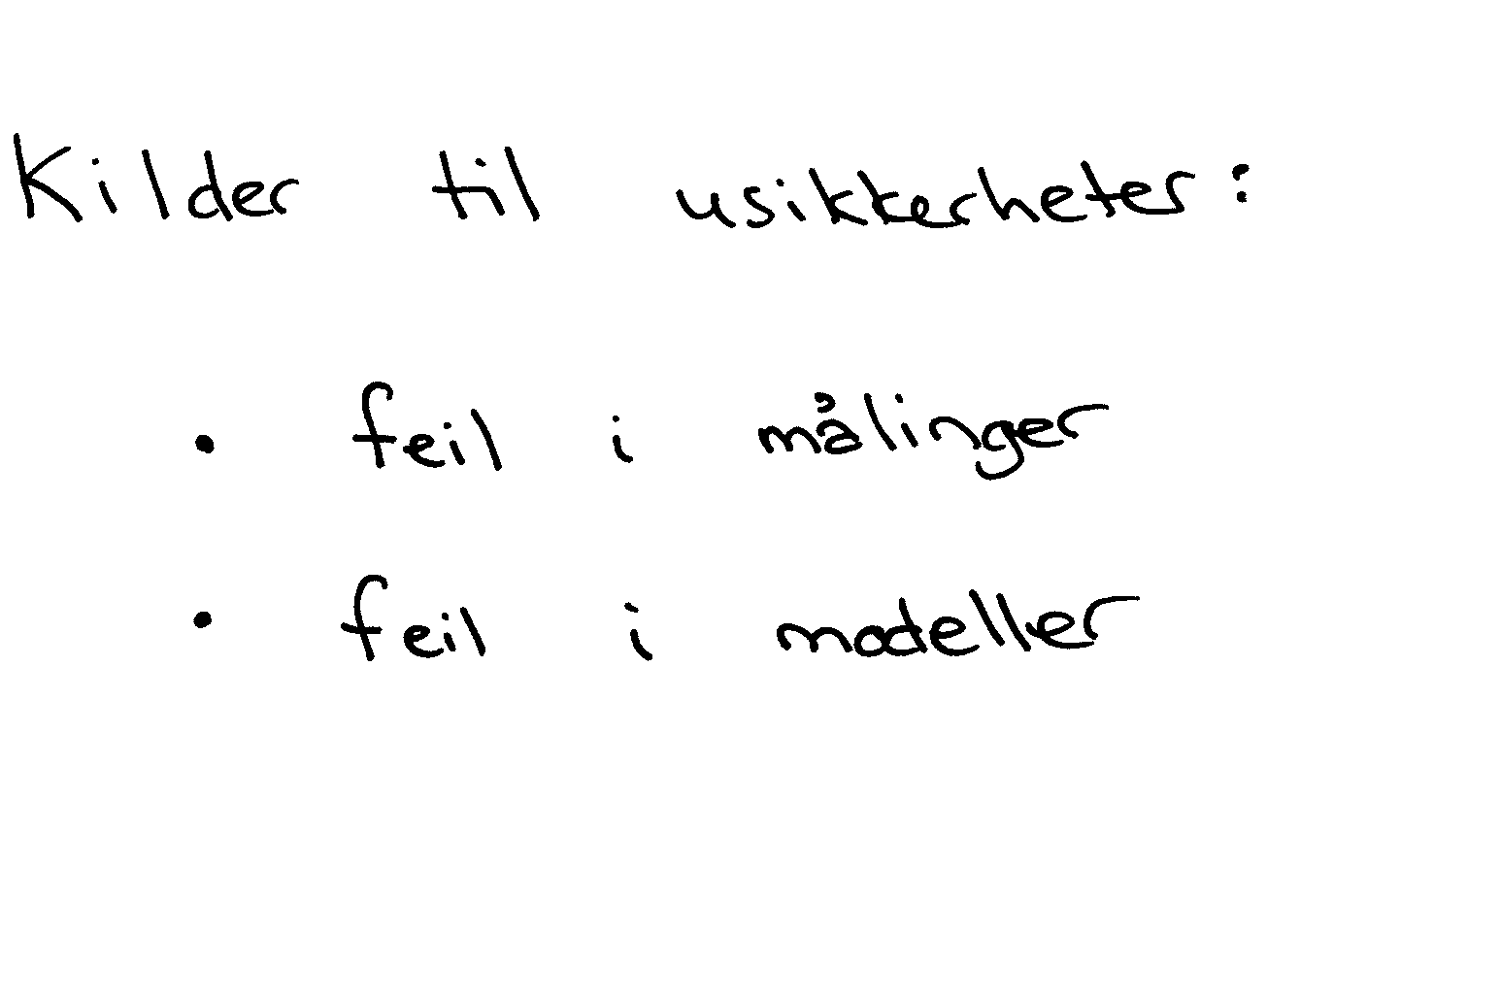 Kilder til usikkerheter:
• feil i målinger
• feil i modeller